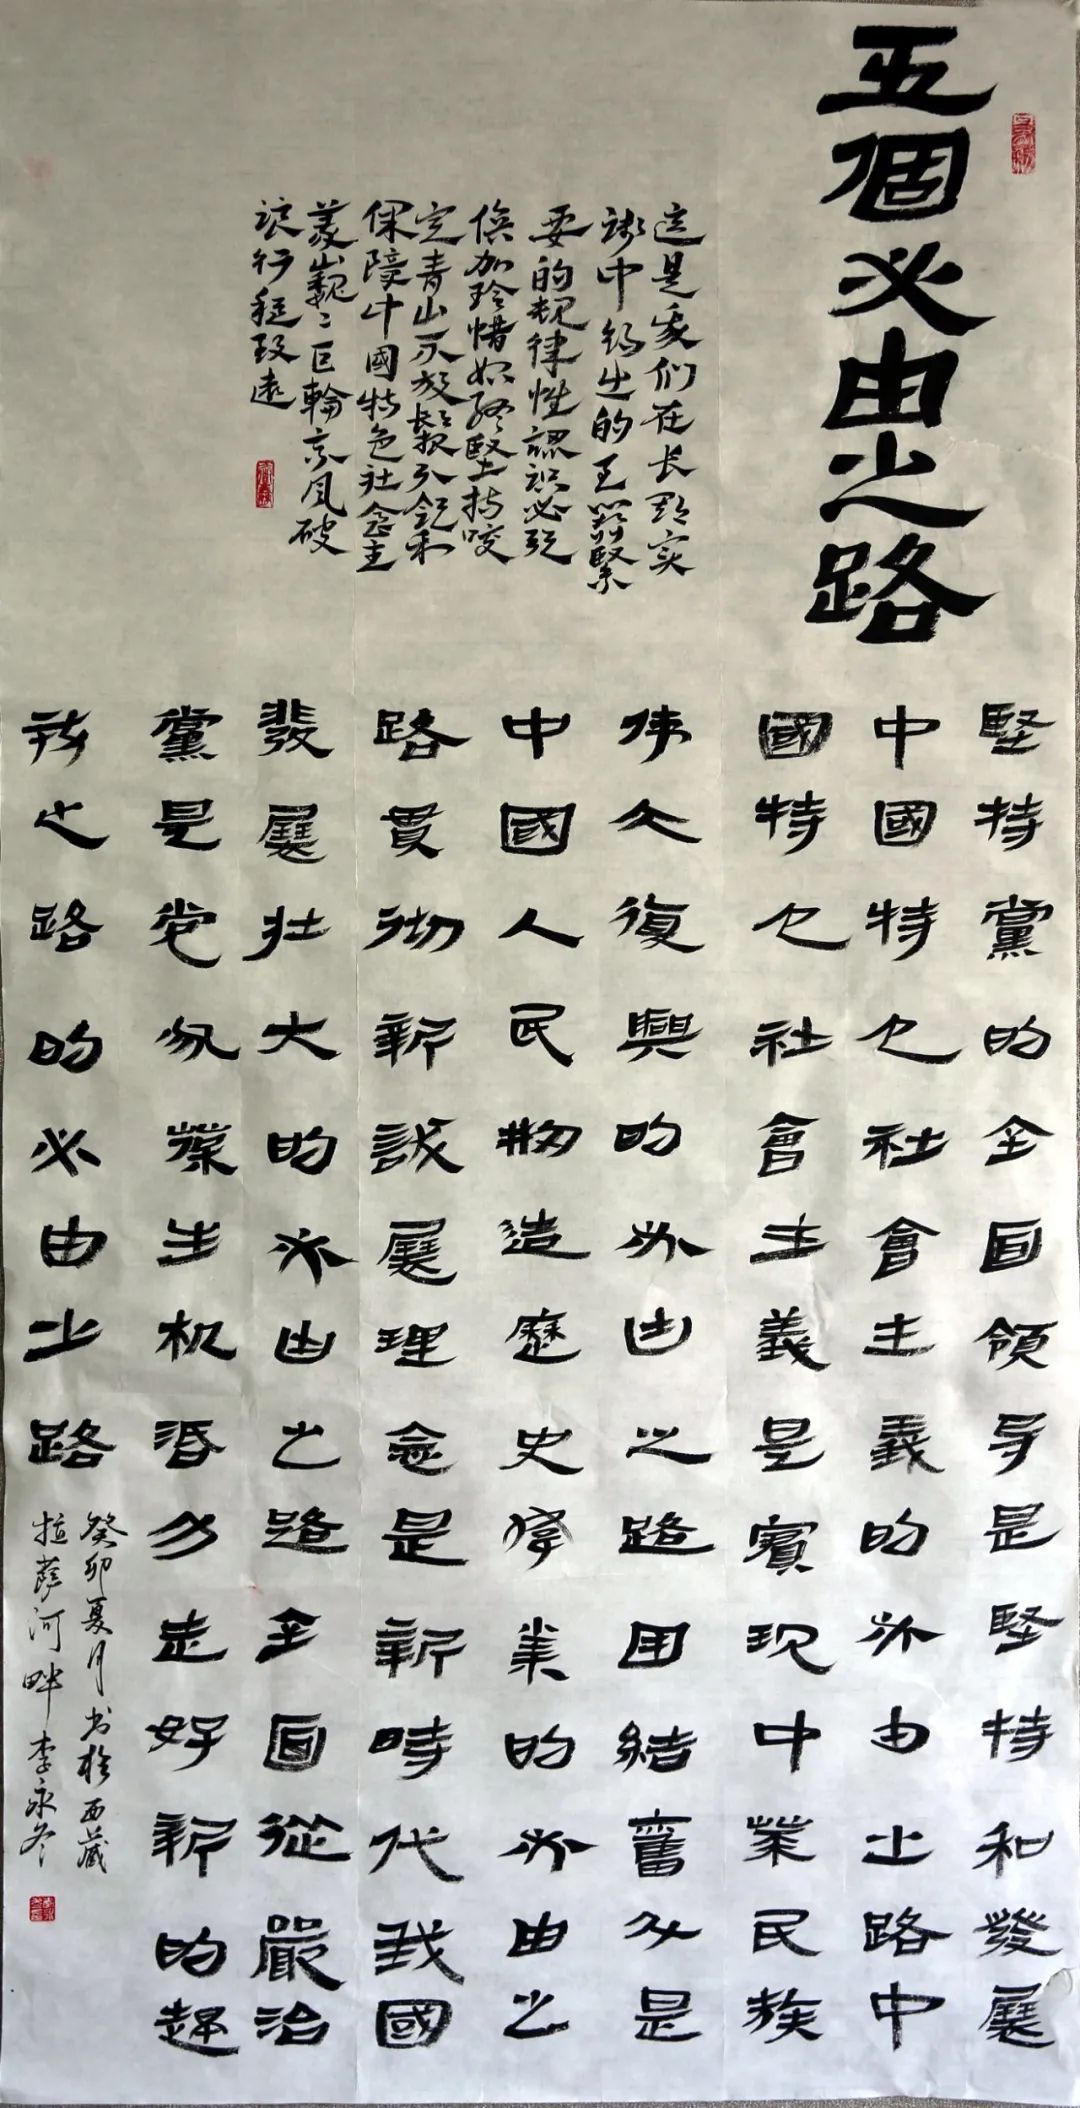 五個必由之路
這是我們在长期实
踐中得出的至關緊
要的规律性認识必须
倍加珍惜始终堅持咬
定青山不放鬆引领和
保障中國特色社會主
義巍々巨輪乘风破
浪行稳致遠
堅持黨的全面領导是堅持和發展
中國特色社會主義的必由之路中
國特色社會主義是實现中華民族
伟大復興的必由之路团結奮斗是
中國人民创造歷史偉業的必由之
路貫彻新發展理念是新時代我國
發展壮大的必由之路全面從嚴治
黨是党永葆生机活力走好新的赶
考之路的必由之路
癸卯夏月书於西藏
拉薩河畔李永冬